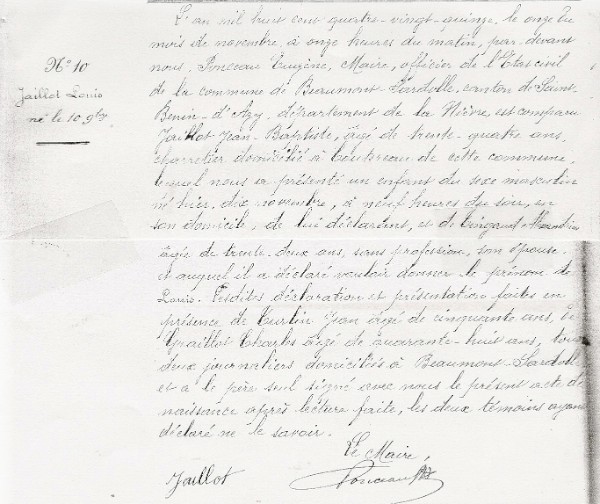 L'an mil huit cent quatre-vingt-quinze, le onze du
mois de novembre, à onze heures du matin, par-devant
nous, Ponceau Eugène, Maire, officier de l'État civil
de la commune de Beaumont-Sardolle, canton de Saint-
Benin-d'Azy, département de la Nièvre, est comparu
Jaillot Jean-Baptiste, âgé de trente-quatre ans,
charretier domicilié à de cette commune,
lequel nous a présenté un enfant du sexe masculin
né hier, dix novembre, à neuf heures du soir, en
son domicile, de lui déclarant, et de
âgée de trente-deux ans, sans profession, son épouse,
et auquel il a déclaré vouloir donner le prénom de
Louis. Lesdites déclaration et présentation faites en
présence de Jean âgé de cinquante ans, de
Charles âgé de quarante-huit ans, tous
deux journaliers domiciliés à Beaumont-Sardolle
et a le père seul signé avec nous le présent acte de
naissance après lecture faite, les deux témoins ayant
déclaré ne le savoir.
Le Maire,
Jaillot Ponceau
N° 10
Jaillot Louis
né le 10 9bre